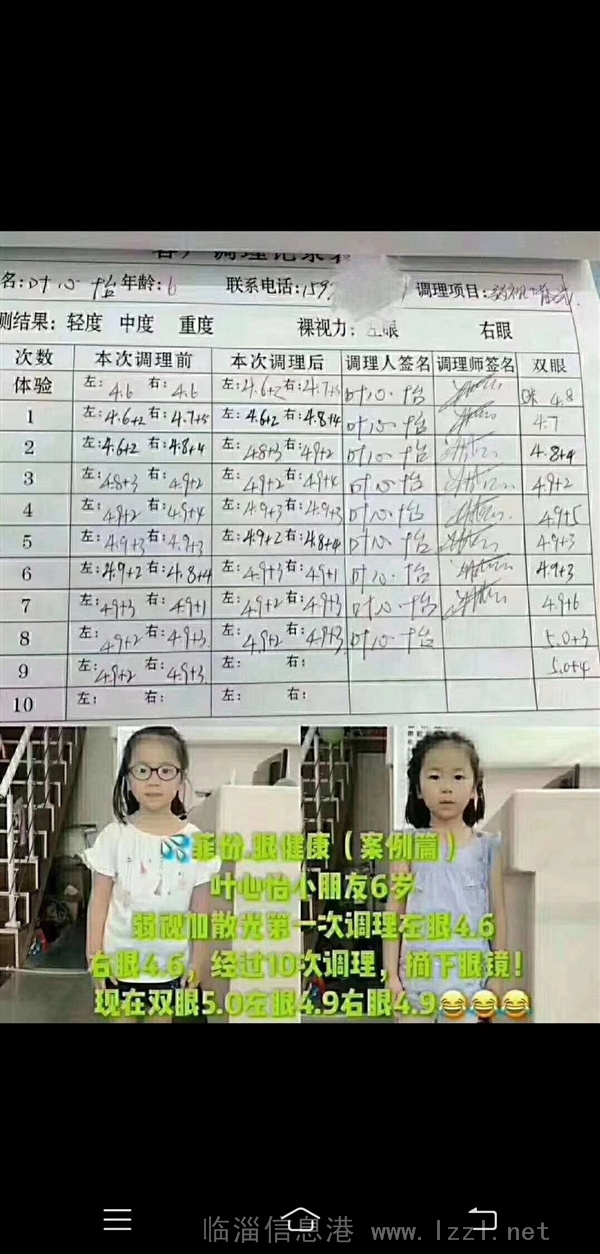 客户调理记录表
名:叶心怡 年龄:6 联系电话:159 调理项目:弱视
测结果: 轻度 中度 重度 裸视力: 左眼 右眼
次数 本次调理前 本次调理后 调理人签名 调理师签名 双眼
体验 左:4.6 右:4.6 左:4.6+2 右:4.7+5 叶心怡 4.8
1 左:4.6+2 右:4.7+5 左:4.6+2 右:4.8+4 叶心怡 4.7
2 左:4.6+2 右:4.8+4 左:4.8+3 右:4.9+2 叶心怡 4.8+4
3 左:4.8+3 右:4.9+2 左:4.9+2 右:4.9+4 叶心怡 4.9+2
4 左:4.9+2 右:4.9+4 左:4.9+3 右:4.9+3 叶心怡 4.9+5
5 左:4.9+3 右:4.9+3 左:4.9+2 右:4.8+4 叶心怡 4.9+3
6 左:4.9+2 右:4.8+4 左:4.9+3 右:4.9+1 叶心怡 4.9+3
7 左:4.9+3 右:4.9+1 左:4.9+2 右:4.9+3 叶心怡 4.9+6
8 左:4.9+2 右:4.9+3 左:4.9+2 右:4.9+3 叶心怡 5.0+3
9 左:4.9+2 右:4.9+3 左: 右: 5.0+4
10 左: 右: 左: 右:
菲份.眼健康（案例篇）
叶心怡小朋友6岁
弱视加散光第一次调理左眼4.6
右眼4.6，经过10次调理，摘下眼镜！
现在双眼5.0左眼4.9右眼4.9
临淄信息港 www.lzzl.net